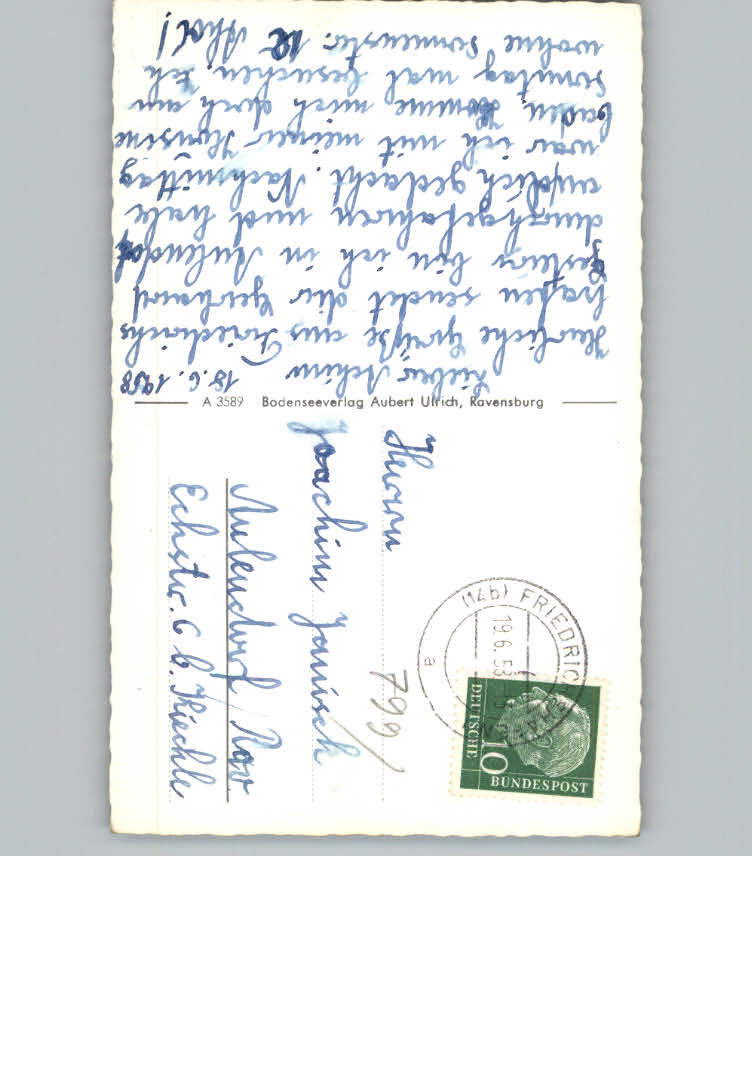 Lieber Achim 18.6.1958
Herzliche Grüße aus Friedrichs
hafen sendet dir Gerhard
Gestern bin ich in Aulendorf
durchgefahren und habe
an dich gedacht. Nachmittag
war ich mit meiner Kousine
baden, komme mich doch am
Sonntag mal besuchen. Ich
wohne Sonnenstr. 12 Ahoi!
A 3589 Bodenseeverlag Aubert Ulrich, Ravensburg
Herrn
Joachim Janisch
Aulendorf/Rav
Eckstr. 6 b. Kiechle
799/
(14b) FRIEDRICHSHAFEN
19.6.58
a
DEUTSCHE
10
BUNDESPOST